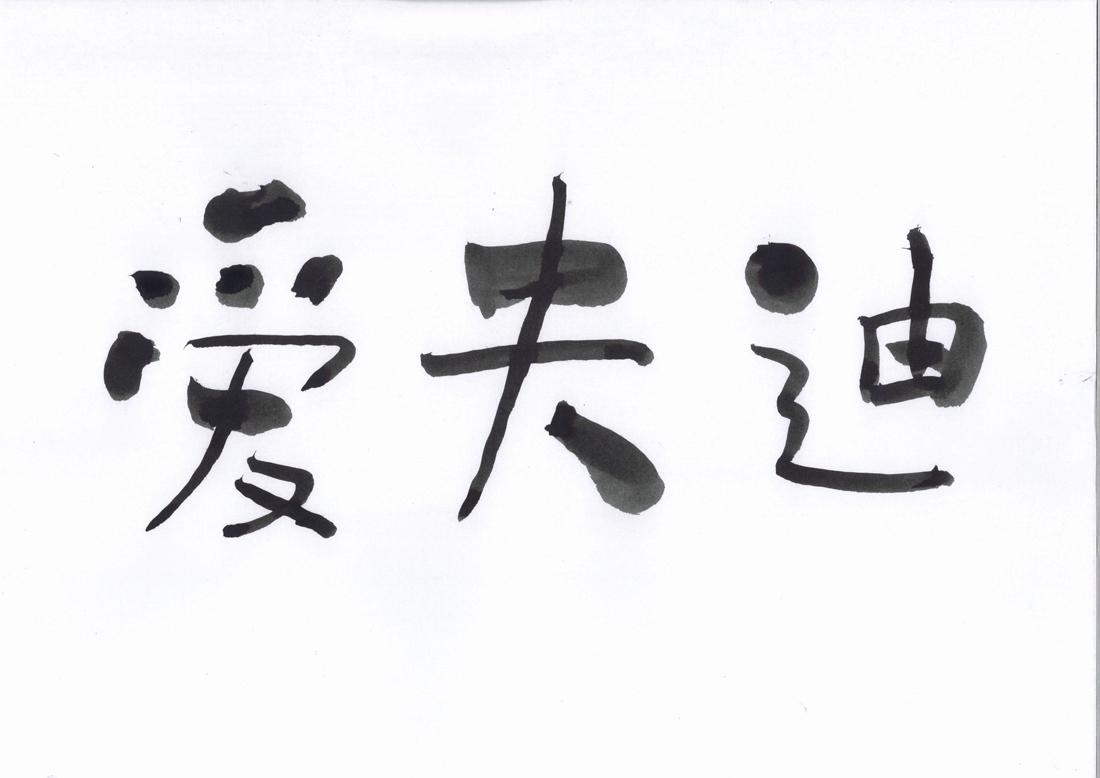 爱夫迪